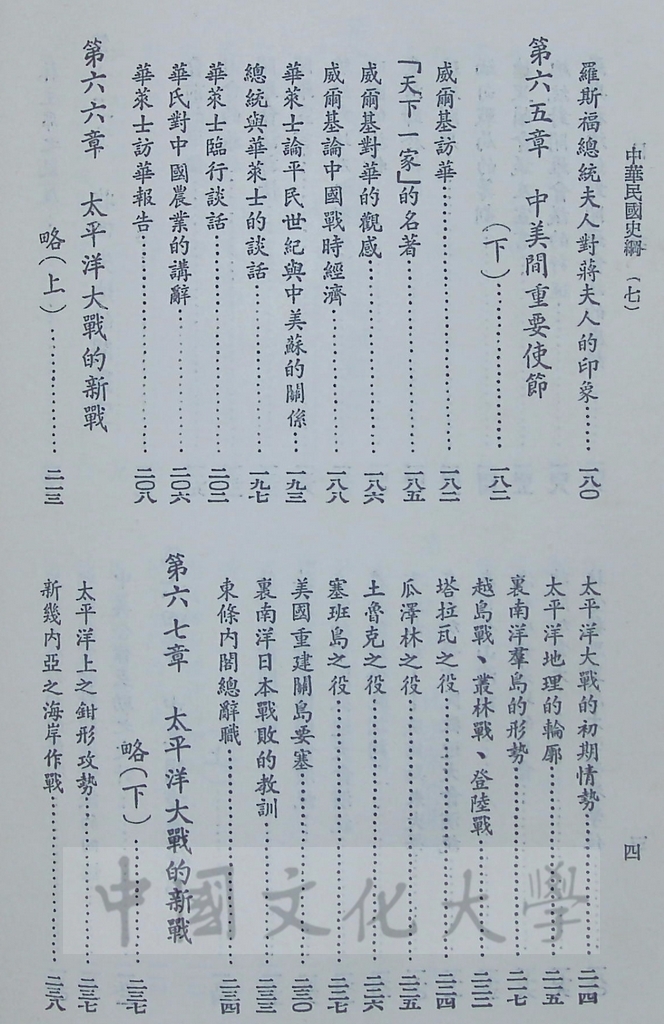 中華民國史綱（七）
四
羅斯福總統夫人對蔣夫人的印象……一八〇
第六五章　中美間重要使節
（下）……一八二
威爾基訪華……一八二
「天下一家」的名著……一八五
威爾基對華的觀感……一八六
威爾基論中國戰時經濟……一八八
華萊士論平民世紀與中美蘇的關係……一九三
總統與華萊士的談話……一九七
華萊士臨行談話……二〇二
華氏對中國農業的講辭……二〇六
華萊士訪華報告……二〇八
第六六章　太平洋大戰的新戰
略（上）……二一三
太平洋大戰的初期情勢……二一四
太平洋地理的輪廓……二一五
裏南洋羣島的形勢……二一七
越島戰、叢林戰、登陸戰……二二二
塔拉瓦之役……二二四
瓜澤林之役……二二五
土魯克之役……二二六
塞班島之役……二二七
美國重建關島要塞……二三〇
裏南洋日本戰敗的教訓……二三三
東條內閣總辭職……二三四
第六七章　太平洋大戰的新戰
略（下）……二三七
太平洋上之鉗形攻勢……二三七
新幾內亞之海岸作戰……二三八
中國文化大學